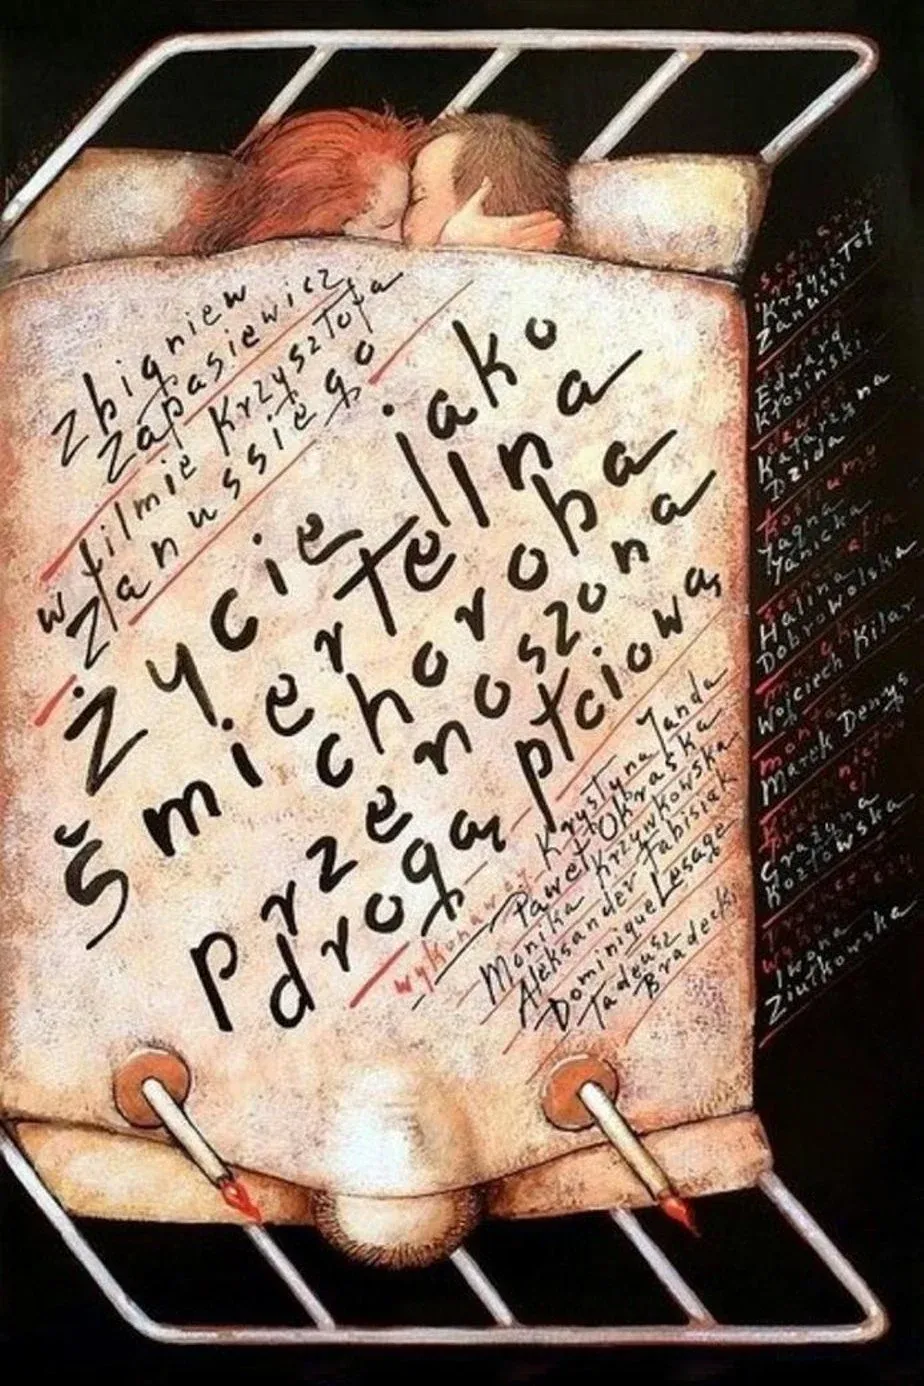 Zbigniew
Zapasiewicz
w filmie Krzysztofa
Zanussiego
Życie jako
śmiertelna
choroba
przenoszona
drogą płciową
wykonawcy Krystyna Janda
Paweł Okraska
Monika Krzywkowska
Aleksander Fabisiak
Dominique Lesage
Tadeusz
Bradecki
Krzysztof
Zanussi
Edward
Kłosiński
Katarzyna
Dzida
kostiumy
Jagna
Janicka
Halina
Dobrowolska
muzyka
Wojciech Kilar
montaż
Marek Denys
kierownictwo
produkcji
Grażyna
Kozłowska
Iwona
Ziułkowska